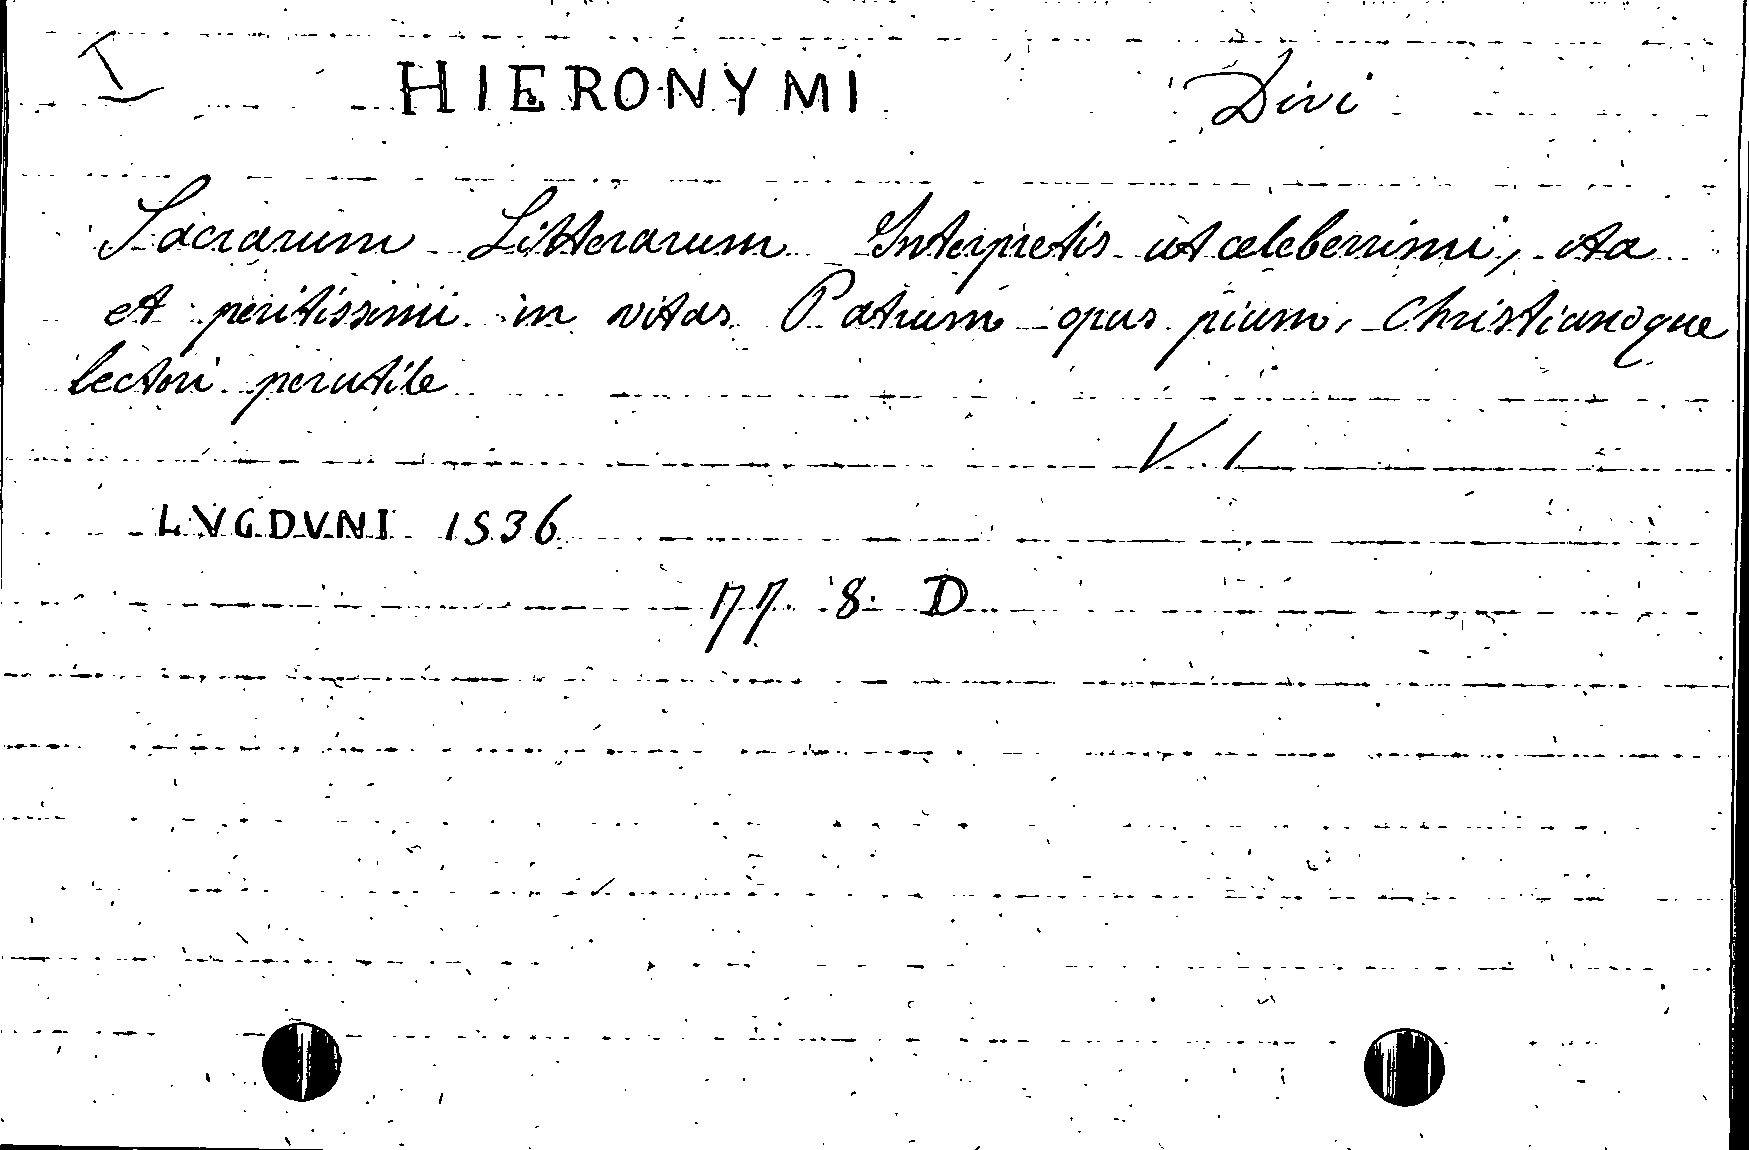 I HIERONYMI Divi
Sacrarum Litterarum Interpretis ut celeberrimi, ita
et peritissimi in vitas Patrum opus pium, Christianoque
lectori perutile
V. 1
LVGDVNI 1536
77. 8. D